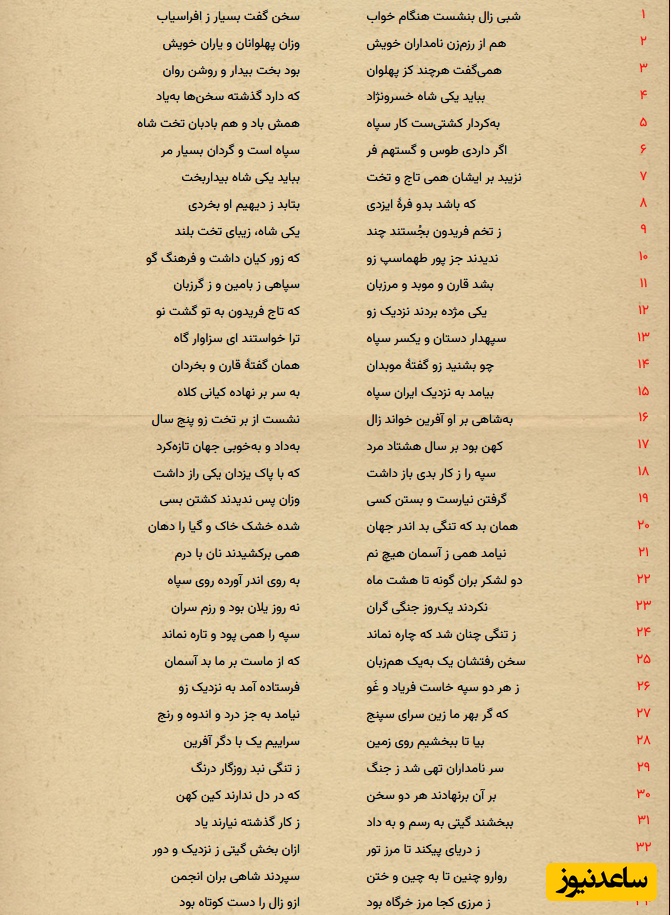 ۱ شبی زال بنشست هنگام خواب سخن گفت بسیار ز افراسیاب
۲ هم از رزم‌زن نامداران خویش وزان پهلوانان و یاران خویش
۳ همی‌گفت هرچند کز پهلوان بود بخت بیدار و روشن روان
۴ بباید یکی شاه خسرونژاد که دارد گذشته سخن‌ها به‌یاد
۵ به‌کردار کشتی‌ست کار سپاه همش باد و هم بادبان تخت شاه
۶ اگر داردی طوس و گستهم فر سپاه است و گردان بسیار مر
۷ نزیبد بر ایشان همی تاج و تخت بباید یکی شاه بیداربخت
۸ که باشد بدو فرهٔ ایزدی بتابد ز دیهیم او بخردی
۹ ز تخم فریدون بجُستند چند یکی شاه، زیبای تخت بلند
۱۰ ندیدند جز پور طهماسپ زو که زور کیان داشت و فرهنگ گو
۱۱ بشد قارن و موبد و مرزبان سپاهی ز بامین و ز گرزبان
۱۲ یکی مژده بردند نزدیک زو که تاج فریدون به تو گشت نو
۱۳ سپهدار دستان و یکسر سپاه ترا خواستند ای سزاوار گاه
۱۴ چو بشنید زو گفتهٔ موبدان همان گفتهٔ قارن و بخردان
۱۵ بیامد به نزدیک ایران سپاه به سر بر نهاده کیانی کلاه
۱۶ به‌شاهی بر او آفرین خواند زال نشست از بر تخت زو پنج سال
۱۷ کهن بود بر سال هشتاد مرد به‌داد و به‌خوبی جهان تازه‌کرد
۱۸ سپه را ز کار بدی باز داشت که با پاک یزدان یکی راز داشت
۱۹ گرفتن نیارست و بستن کسی وزان پس ندیدند کشتن بسی
۲۰ همان بد که تنگی بد اندر جهان شده خشک خاک و گیا را دهان
۲۱ نیامد همی ز آسمان هیچ نم همی برکشیدند نان با درم
۲۲ دو لشکر بران گونه تا هشت ماه به روی اندر آورده روی سپاه
۲۳ نکردند یک‌روز جنگی گران نه روز یلان بود و رزم سران
۲۴ ز تنگی چنان شد که چاره نماند سپه را همی پود و تاره نماند
۲۵ سخن رفتشان یک به‌یک هم‌زبان که از ماست بر ما بد آسمان
۲۶ ز هر دو سپه خاست فریاد و غَو فرستاده آمد به نزدیک زو
۲۷ که گر بهر ما زین سرای سپنج نیامد به جز درد و اندوه و رنج
۲۸ بیا تا ببخشیم روی زمین سراییم یک با دگر آفرین
۲۹ سر نامداران تهی شد ز جنگ ز تنگی نبد روزگار درنگ
۳۰ بر آن برنهادند هر دو سخن که در دل ندارند کین کهن
۳۱ ببخشند گیتی به رسم و به داد ز کار گذشته نیارند یاد
۳۲ ز دریای پیکند تا مرز تور ازان بخش گیتی ز نزدیک و دور
روارو چنین تا به چین و ختن سپردند شاهی بران انجمن
ز مرزی کجا مرز خرگاه بود ازو زال را دست کوتاه بود
ساعدنیوز